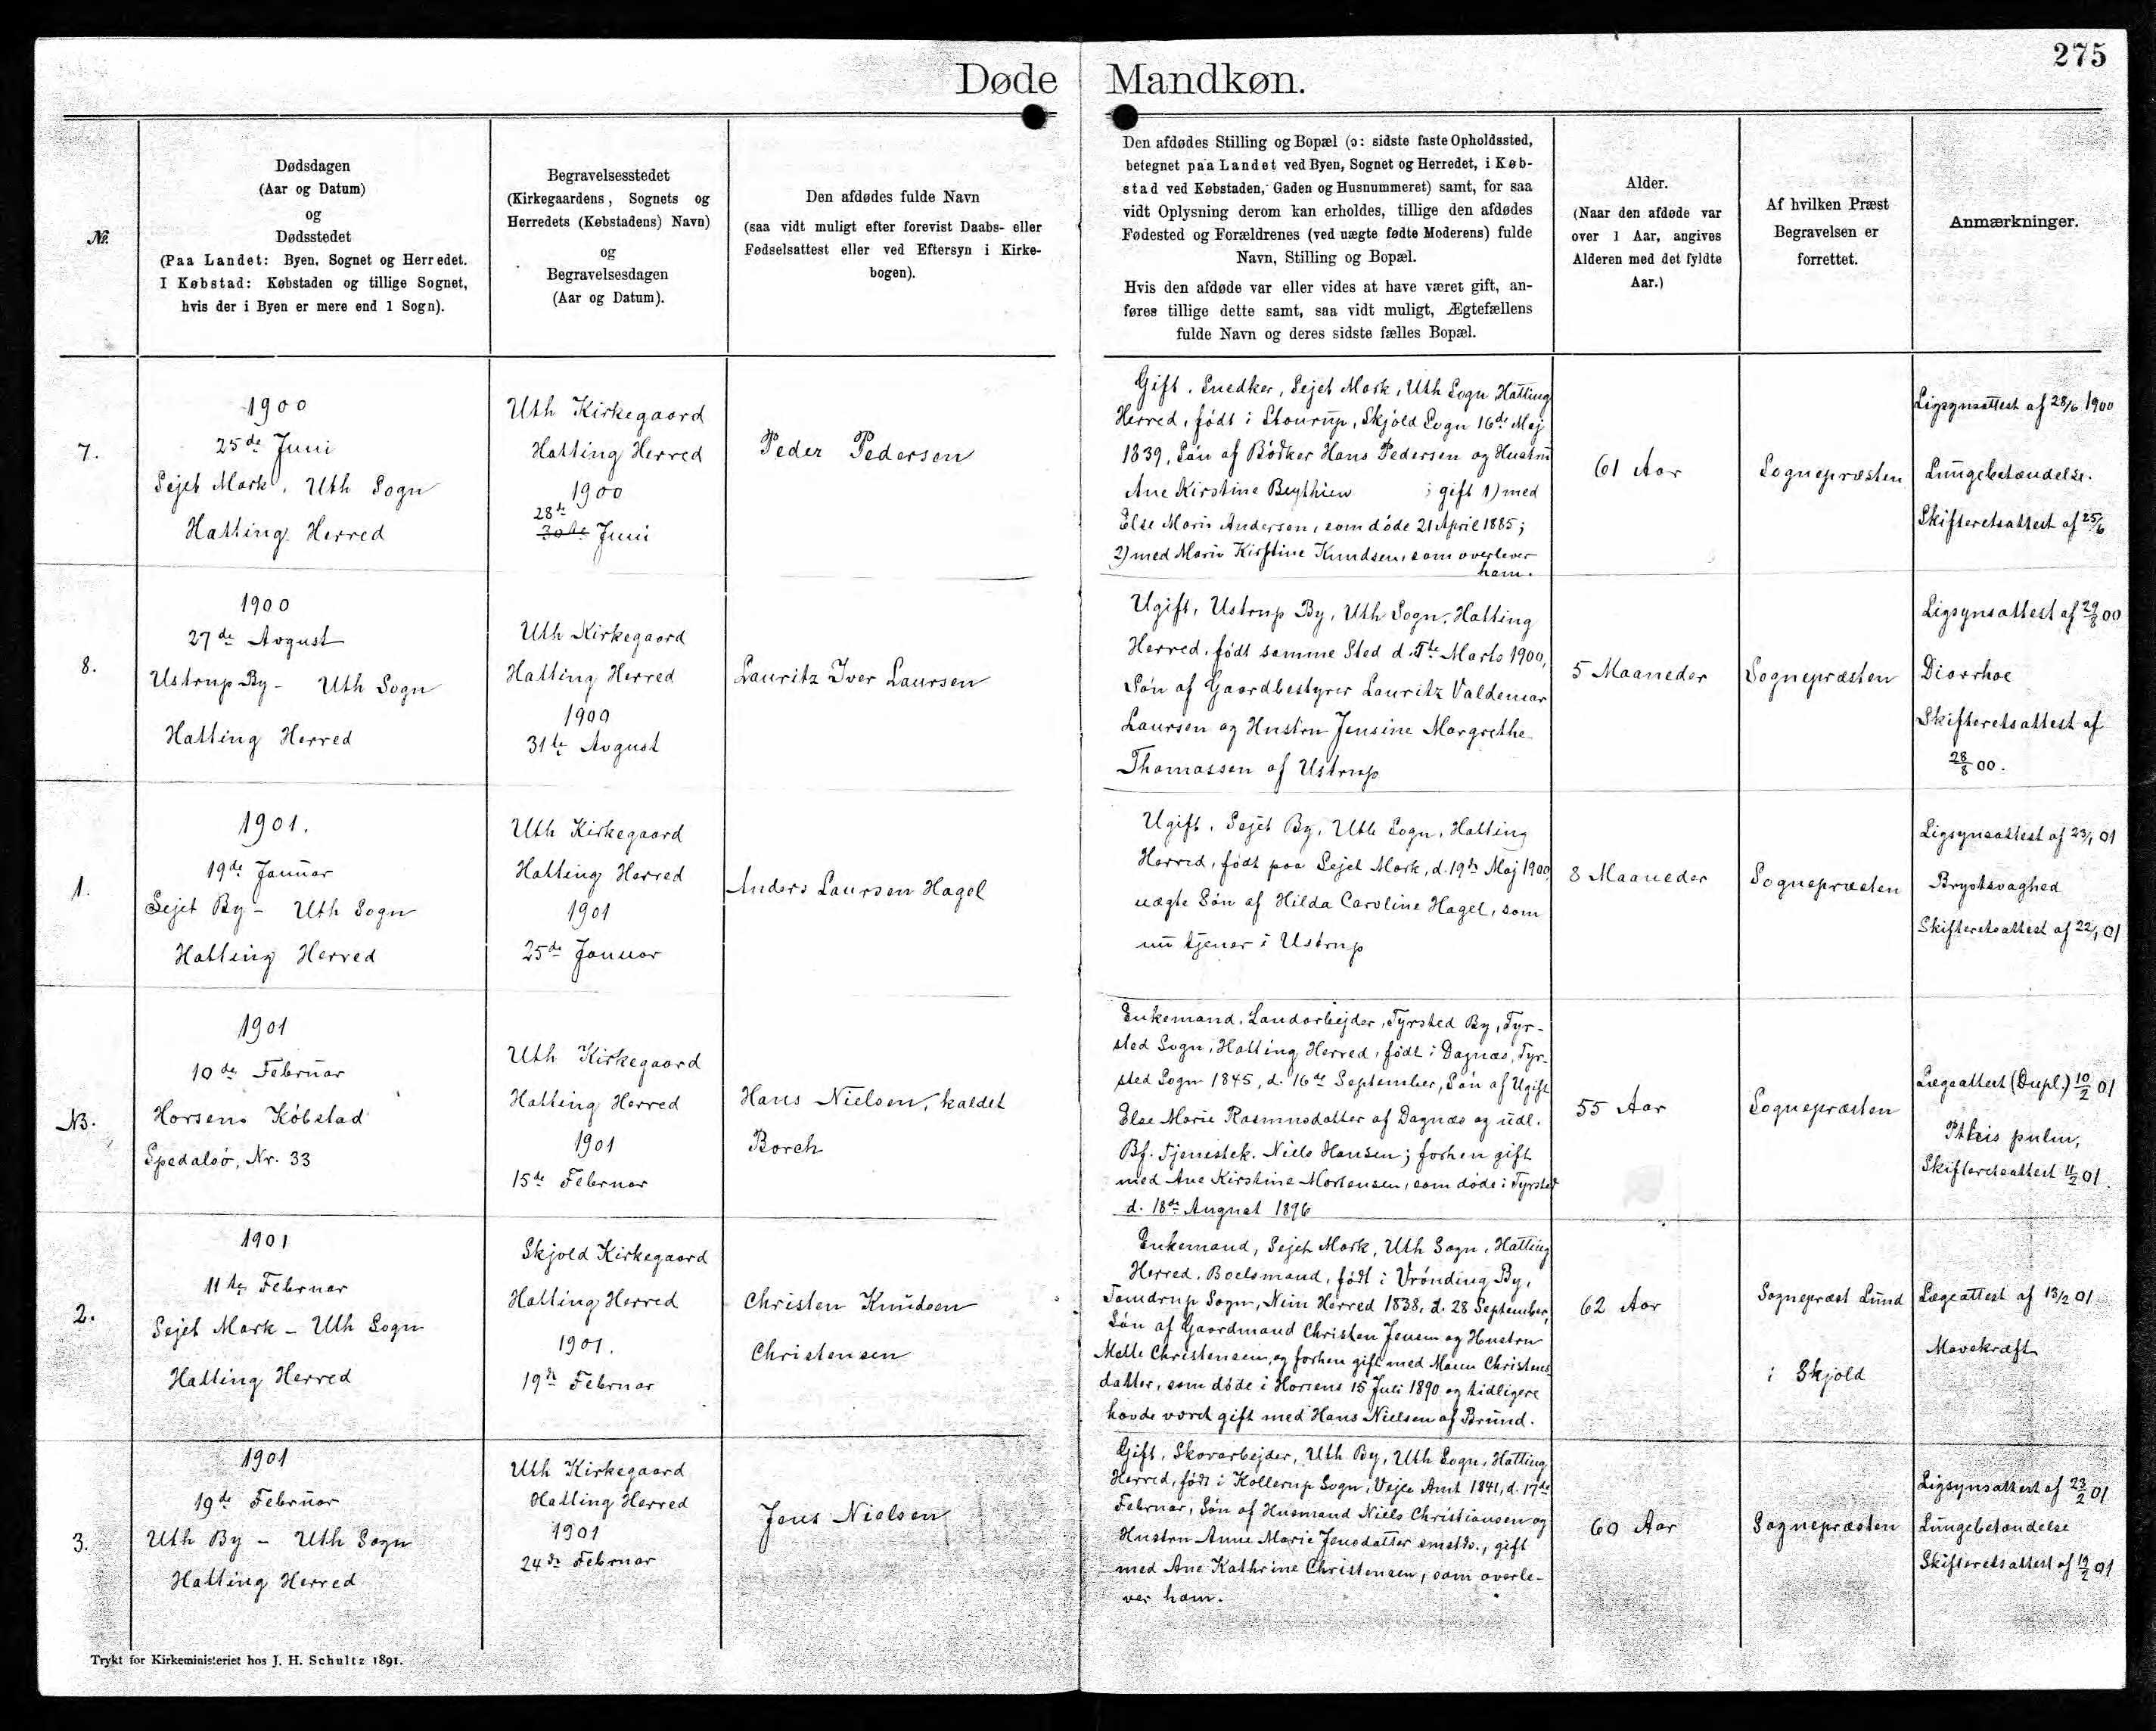 275
Døde Mandkøn.
Nr.
Dødsdagen
(Aar og Datum)
og
Dødsstedet
(Paa Landet: Byen, Sognet og Herredet.
I Købstad: Købstaden og tillige Sognet,
hvis der i Byen er mere end 1 Sogn).
Begravelsesstedet
(Kirkegaardens, Sognets og
Herredets (Købstadens) Navn)
og
Begravelsesdagen
(Aar og Datum).
Den afdødes fulde Navn
(saa vidt muligt efter forevist Daabs- eller
Fødselsattest eller ved Eftersyn i Kirke-
bogen).
Den afdødes Stilling og Bopæl (ɔ: sidste faste Opholdssted,
betegnet paa Landet ved Byen, Sognet og Herredet, i Køb-
stad ved Købstaden, Gaden og Husnummeret) samt, for saa
vidt Oplysning derom kan erholdes, tillige den afdødes
Fødested og Forældrenes (ved uægte fødte Moderens) fulde
Navn, Stilling og Bopæl.
Hvis den afdøde var eller vides at have været gift, an-
føres tillige dette samt, saa vidt muligt, Ægtefællens
fulde Navn og deres sidste fælles Bopæl.
Alder.
(Naar den afdøde var
over 1 Aar, angives
Alderen med det fyldte
Aar.)
Af hvilken Præst
Begravelsen er
forrettet.
Anmærkninger.
7.
1900
25de Juni
Sejet Mark, Uth Sogn
Hatting Herred
Uth Kirkegaard
Hatting Herred
1900
28de
30te Juni
Peder Pedersen
Gift. Snedker, Sejet Mark, Uth Sogn Hatting
Herred, født i Stourup, Skjold Sogn 16de Maj
1839, Søn af Bødker Hans Pedersen og Hustru
Ane Kirstine Beythien ; gift 1) med
Else Marie Andersen, som døde 21 April 1885;
2) med Marie Kirstine Knudsen, som overlever
ham.
61 Aar
Sognepræsten
Ligsynsattest af 28/6 1900
Lungebetændelse.
Skifteretsattest af 25/6
8.
1900
27de August
Ustrup By - Uth Sogn
Hatting Herred
Uth Kirkegaard
Hatting Herred
1900
31te August
Lauritz Iver Laursen
Ugift, Ustrup By, Uth Sogn, Hatting
Herred, født samme Sted d. Marts 1900,
Søn af Gaardbestyrer Lauritz Valdemar
Laursen og Hustru Jensine Margrethe
Thomassen af Ustrup
5 Maaneder
Sognepræsten
Ligsynsattest af 29/8 00
Diarrhoe
Skifteretsattest af
28/8 00.
1.
1901.
19de Januar
Sejet By - Uth Sogn
Hatting Herred
Uth Kirkegaard
Hatting Herred
1901
25de Januar
Anders Laursen Hagel
Ugift. Sejet By, Uth Sogn, Hatting
Herred, født paa Sejet Mark, d. 19de Maj 1900,
uægte Søn af Hilda Caroline Hagel, som
nu tjener i Ustrup
8 Maaneder
Sognepræsten
Ligsynsattest af 23/1 01
Brystsvaghed
Skifteretsattest af 22/1 01
NB.
1901
10de Februar
Horsens Købstad
Spedalsø, Nr. 33
Uth Kirkegaard
Hatting Herred
1901
15de Februar
Hans Nielsen, kaldet
Borch
Enkemand, Landarbejder, Tyrsted By, Tyr-
sted Sogn, Hatting Herred, født i Dagnæs, Tyr-
sted Sogn 1845, d. 16de September, Søn af Ugift
Else Marie Rasmusdatter af Dagnæs og udl.
Bf. Tjenestek. Niels Hansen; forhen gift
med Ane Kirstine Mortensen, som døde i Tyrsted
d. 18de August 1896
55 Aar
Sognepræsten
Lægeattest (Dupl.) 10/2 01
Pthisis pulm,
Skifteretsattest 11/2 01.
2.
1901
11te Februar
Sejet Mark - Uth Sogn
Hatting Herred
Skjold Kirkegaard
Hatting Herred
1901.
19de Februar
Christen Knudsen
Christensen
Enkemand, Sejet Mark, Uth Sogn, Hatting
Herred. Boelsmand, født i Vrønding By,
Tamdrup Sogn, Nim Herred 1838, d. 28 September,
Søn af Gaardmand Christen Jensen og Hustru
Mette Christensen, og forhen gift med Maren Christens
datter, som døde i Horsens 15 Juli 1890 og tidligere
havde været gift med Hans Nielsen af Brund.
62 Aar
Sognepræst Lund
i Skjold
Lægeattest af 13/2 01
Mavekræft
3.
1901
19de Februar
Uth By - Uth Sogn
Hatting Herred
Uth Kirkegaard
Hatting Herred
1901
24de Februar
Jens Nielsen
Gift, Skovarbejder, Uth By, Uth Sogn, Hatting
Herred, født i Kollerup Sogn, Vejle Amt 1841, d. 17de
Februar, Søn af Husmand Niels Christiansen og
Hustru Anne Marie Jensdatter smstds., gift
med Ane Kathrine Christensen, som overle-
ver ham.
60 Aar
Sognepræsten
Ligsynsattest af 23/2 01
Lungebetændelse
Skifteretsattest af 19/2 01
Trykt for Kirkeministeriet hos J. H. Schultz 1891.